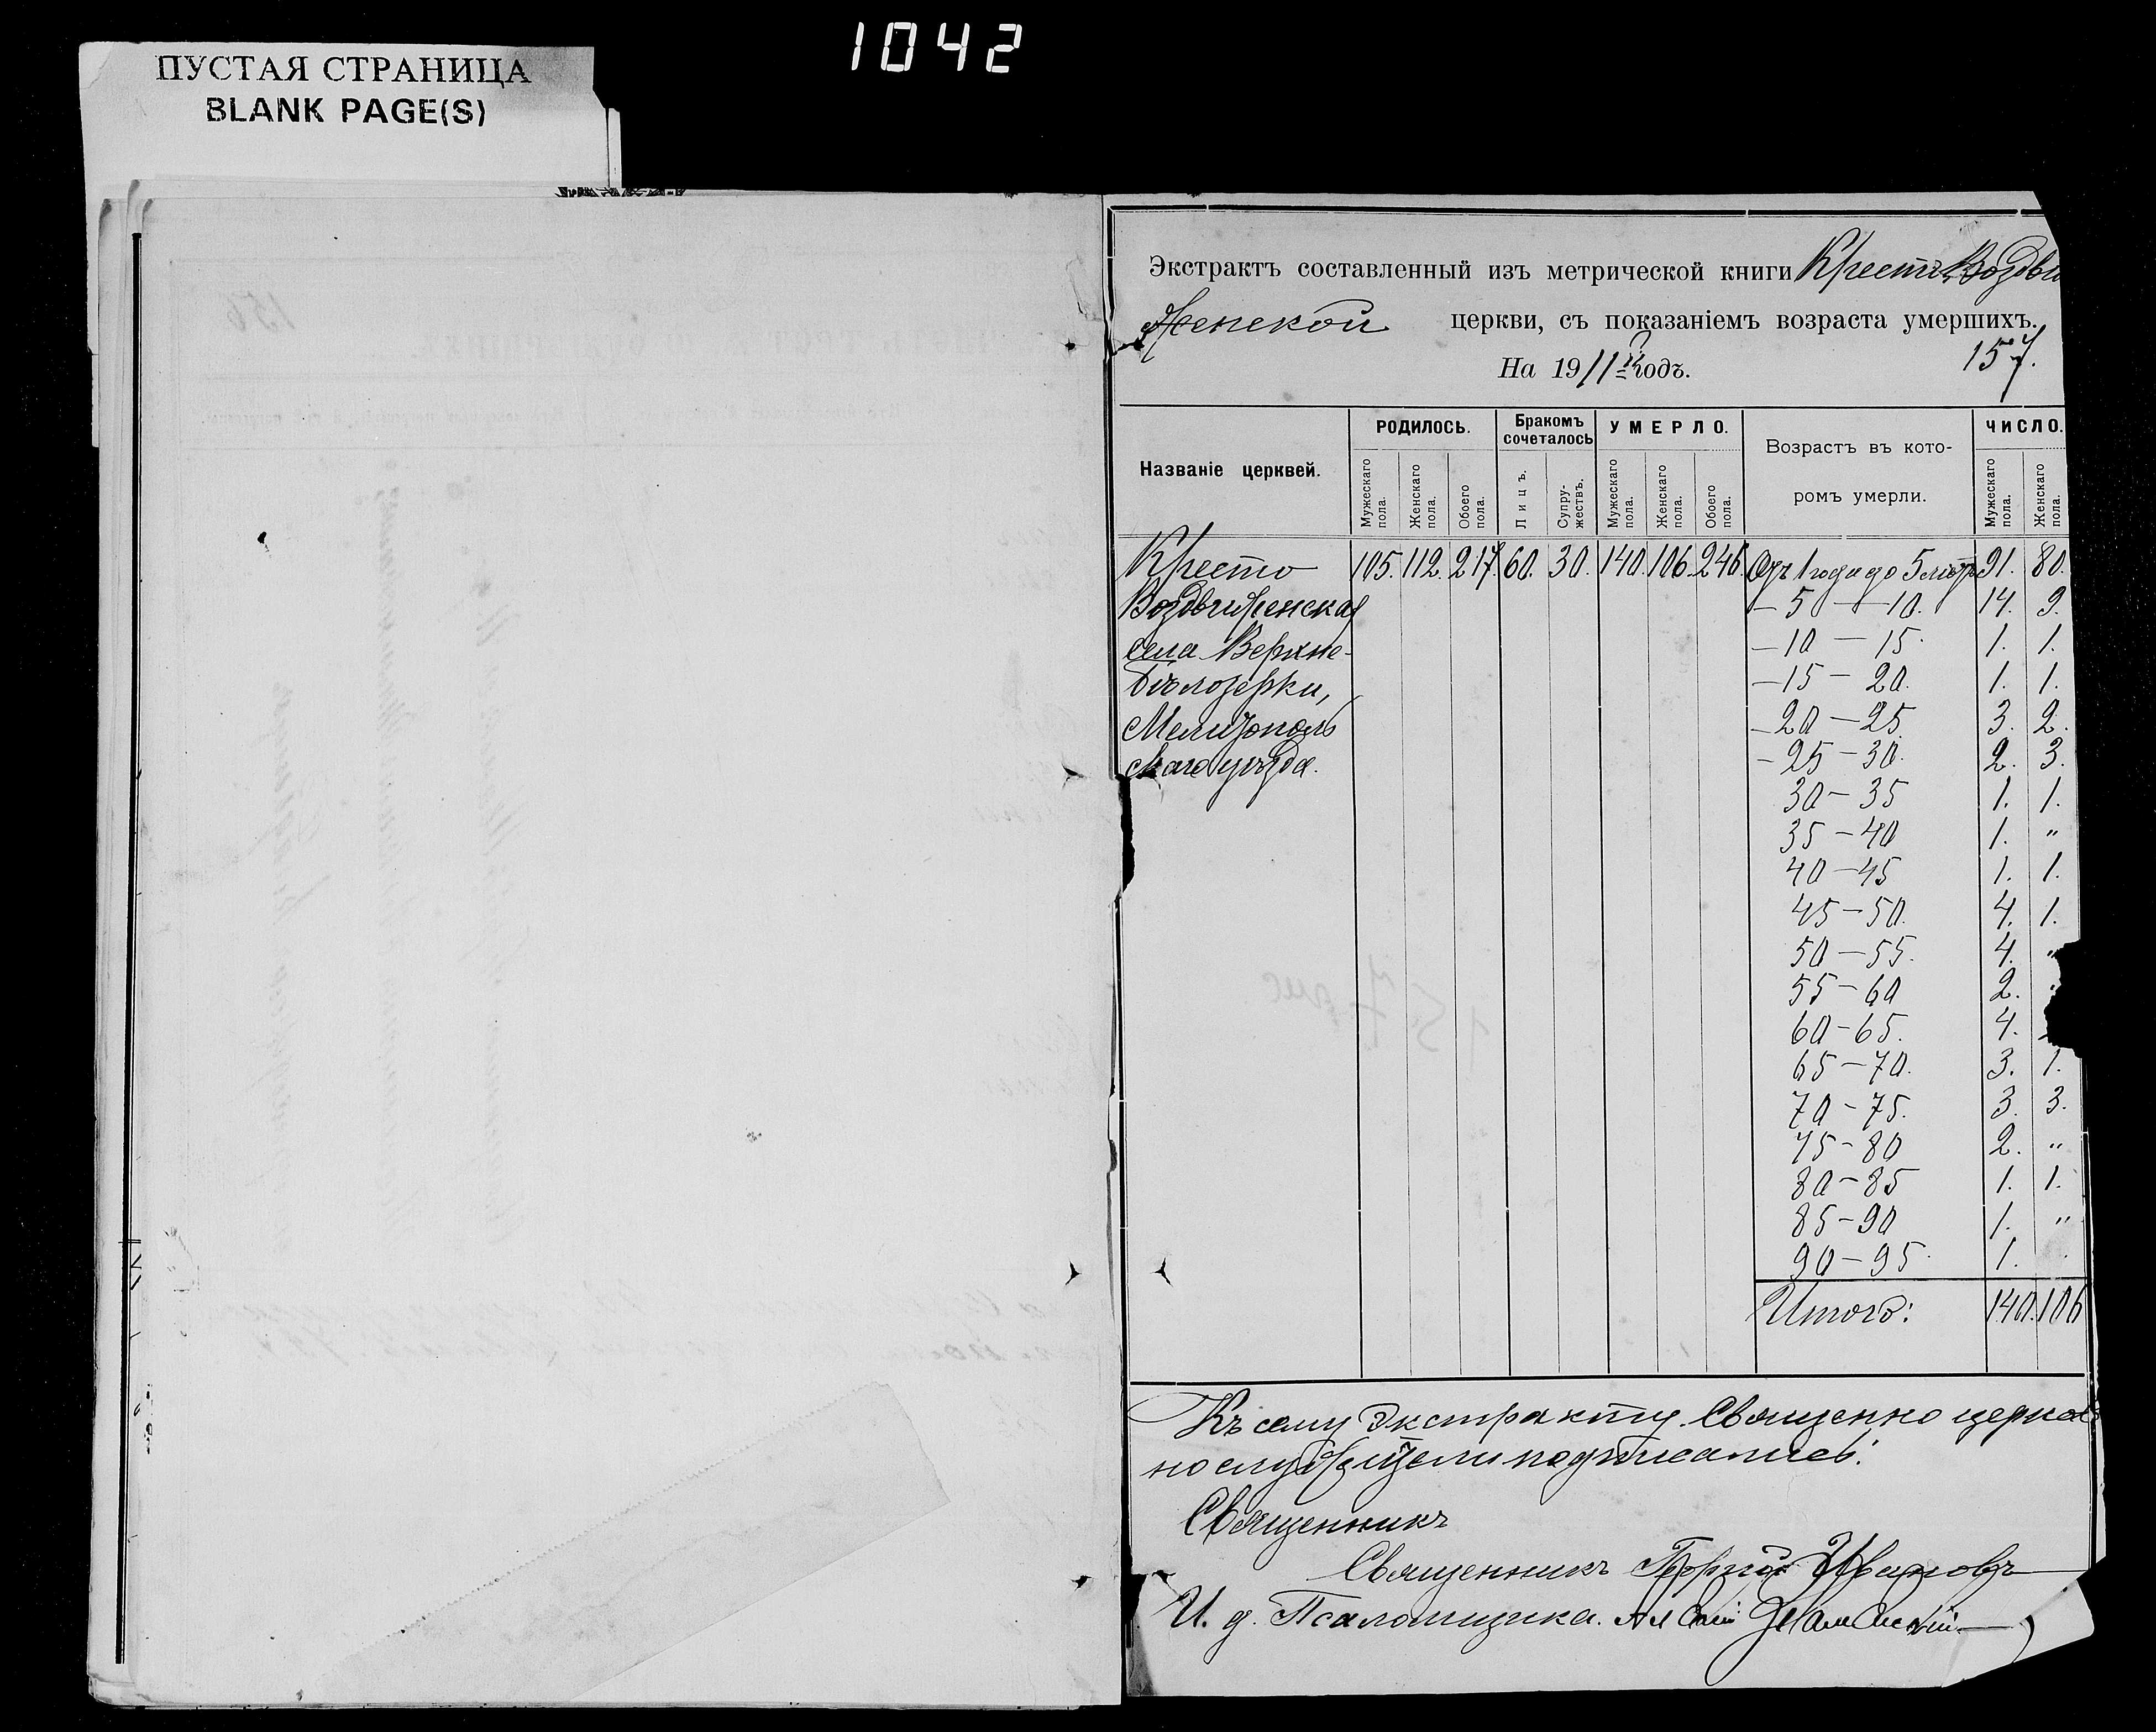 1042
ПУСТАЯ СТРАНИЦА
BLANK PAGE(S)
Экстрактъ составленный изъ метрической книги Кресто-Воздви
женской церкви, съ показаніемъ возраста умершихъ.
На 1911й годъ. 157.
Названіе церквей. РОДИЛОСЬ. Бракомъ сочеталось УМЕРЛО. Возрастъ въ кото-ромъ умерли. ЧИСЛО.
Мужескаго пола. Женскаго пола. Обоего пола. Лицъ. Супру-жествъ. Мужескаго пола. Женскаго пола. Обоего пола. Мужескаго пола. Женскаго пола.
Кресто 105. 112. 217. 60. 30. 140. 106. 246. Отъ 1 года до 5 лѣтъ 91. 80.
Воздвиженская — 5 — 10. 14. 9.
села Верхне- — 10 — 15. 1. 1.
Бѣлозерки, — 15 — 20. 1. 1.
Мелитополь — 20 — 25. 3. 2.
скаго уѣзда. — 25 — 30. 2. 3.
30 — 35 1. 1.
35 — 40 1. "
40 — 45 1. 1.
45 — 50. 4. 1.
50 — 55. 4. "
55 — 60 2.
60 — 65. 4.
65 — 70. 3. 1.
70 — 75. 3. 3.
75 — 80 2. "
80 — 85 1. 1.
85 — 90 1. "
90 — 95. 1.
Итого: 140. 106
Къ сему Экстракту Священно церков
нослужители подписались:
Священникъ
Священникъ Георгій Ивановъ
И. д. Псаломщика.